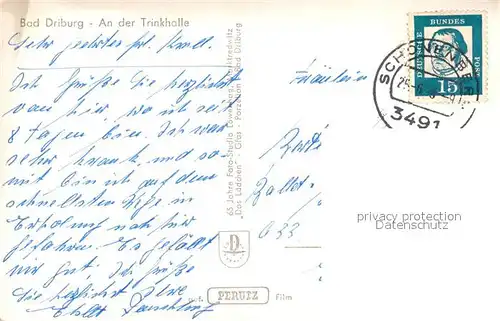 Bad Driburg - An der Trinkhalle
Sehr geehrtes Frl.
Ich grüße Sie herzlichst
von hier wo ich seit
8 Tagen bin. Ich war
sehr krank und so-
mit bin ich auf dem
schnellsten Wege in
Erholung nach hier
gefahren. Es gefällt
mir gut. Ich grüße
Sie herzlichst Ihre
65 Jahre Foto-Studio
"Das Lädchen" - Glas - Porzellan - Bad Driburg
Fräulein
DEUTSCHE BUNDESPOST
15
SCHÖNENBERG
3491
633
privacy protection
www.akpool.co.uk
D
PERUTZ Film